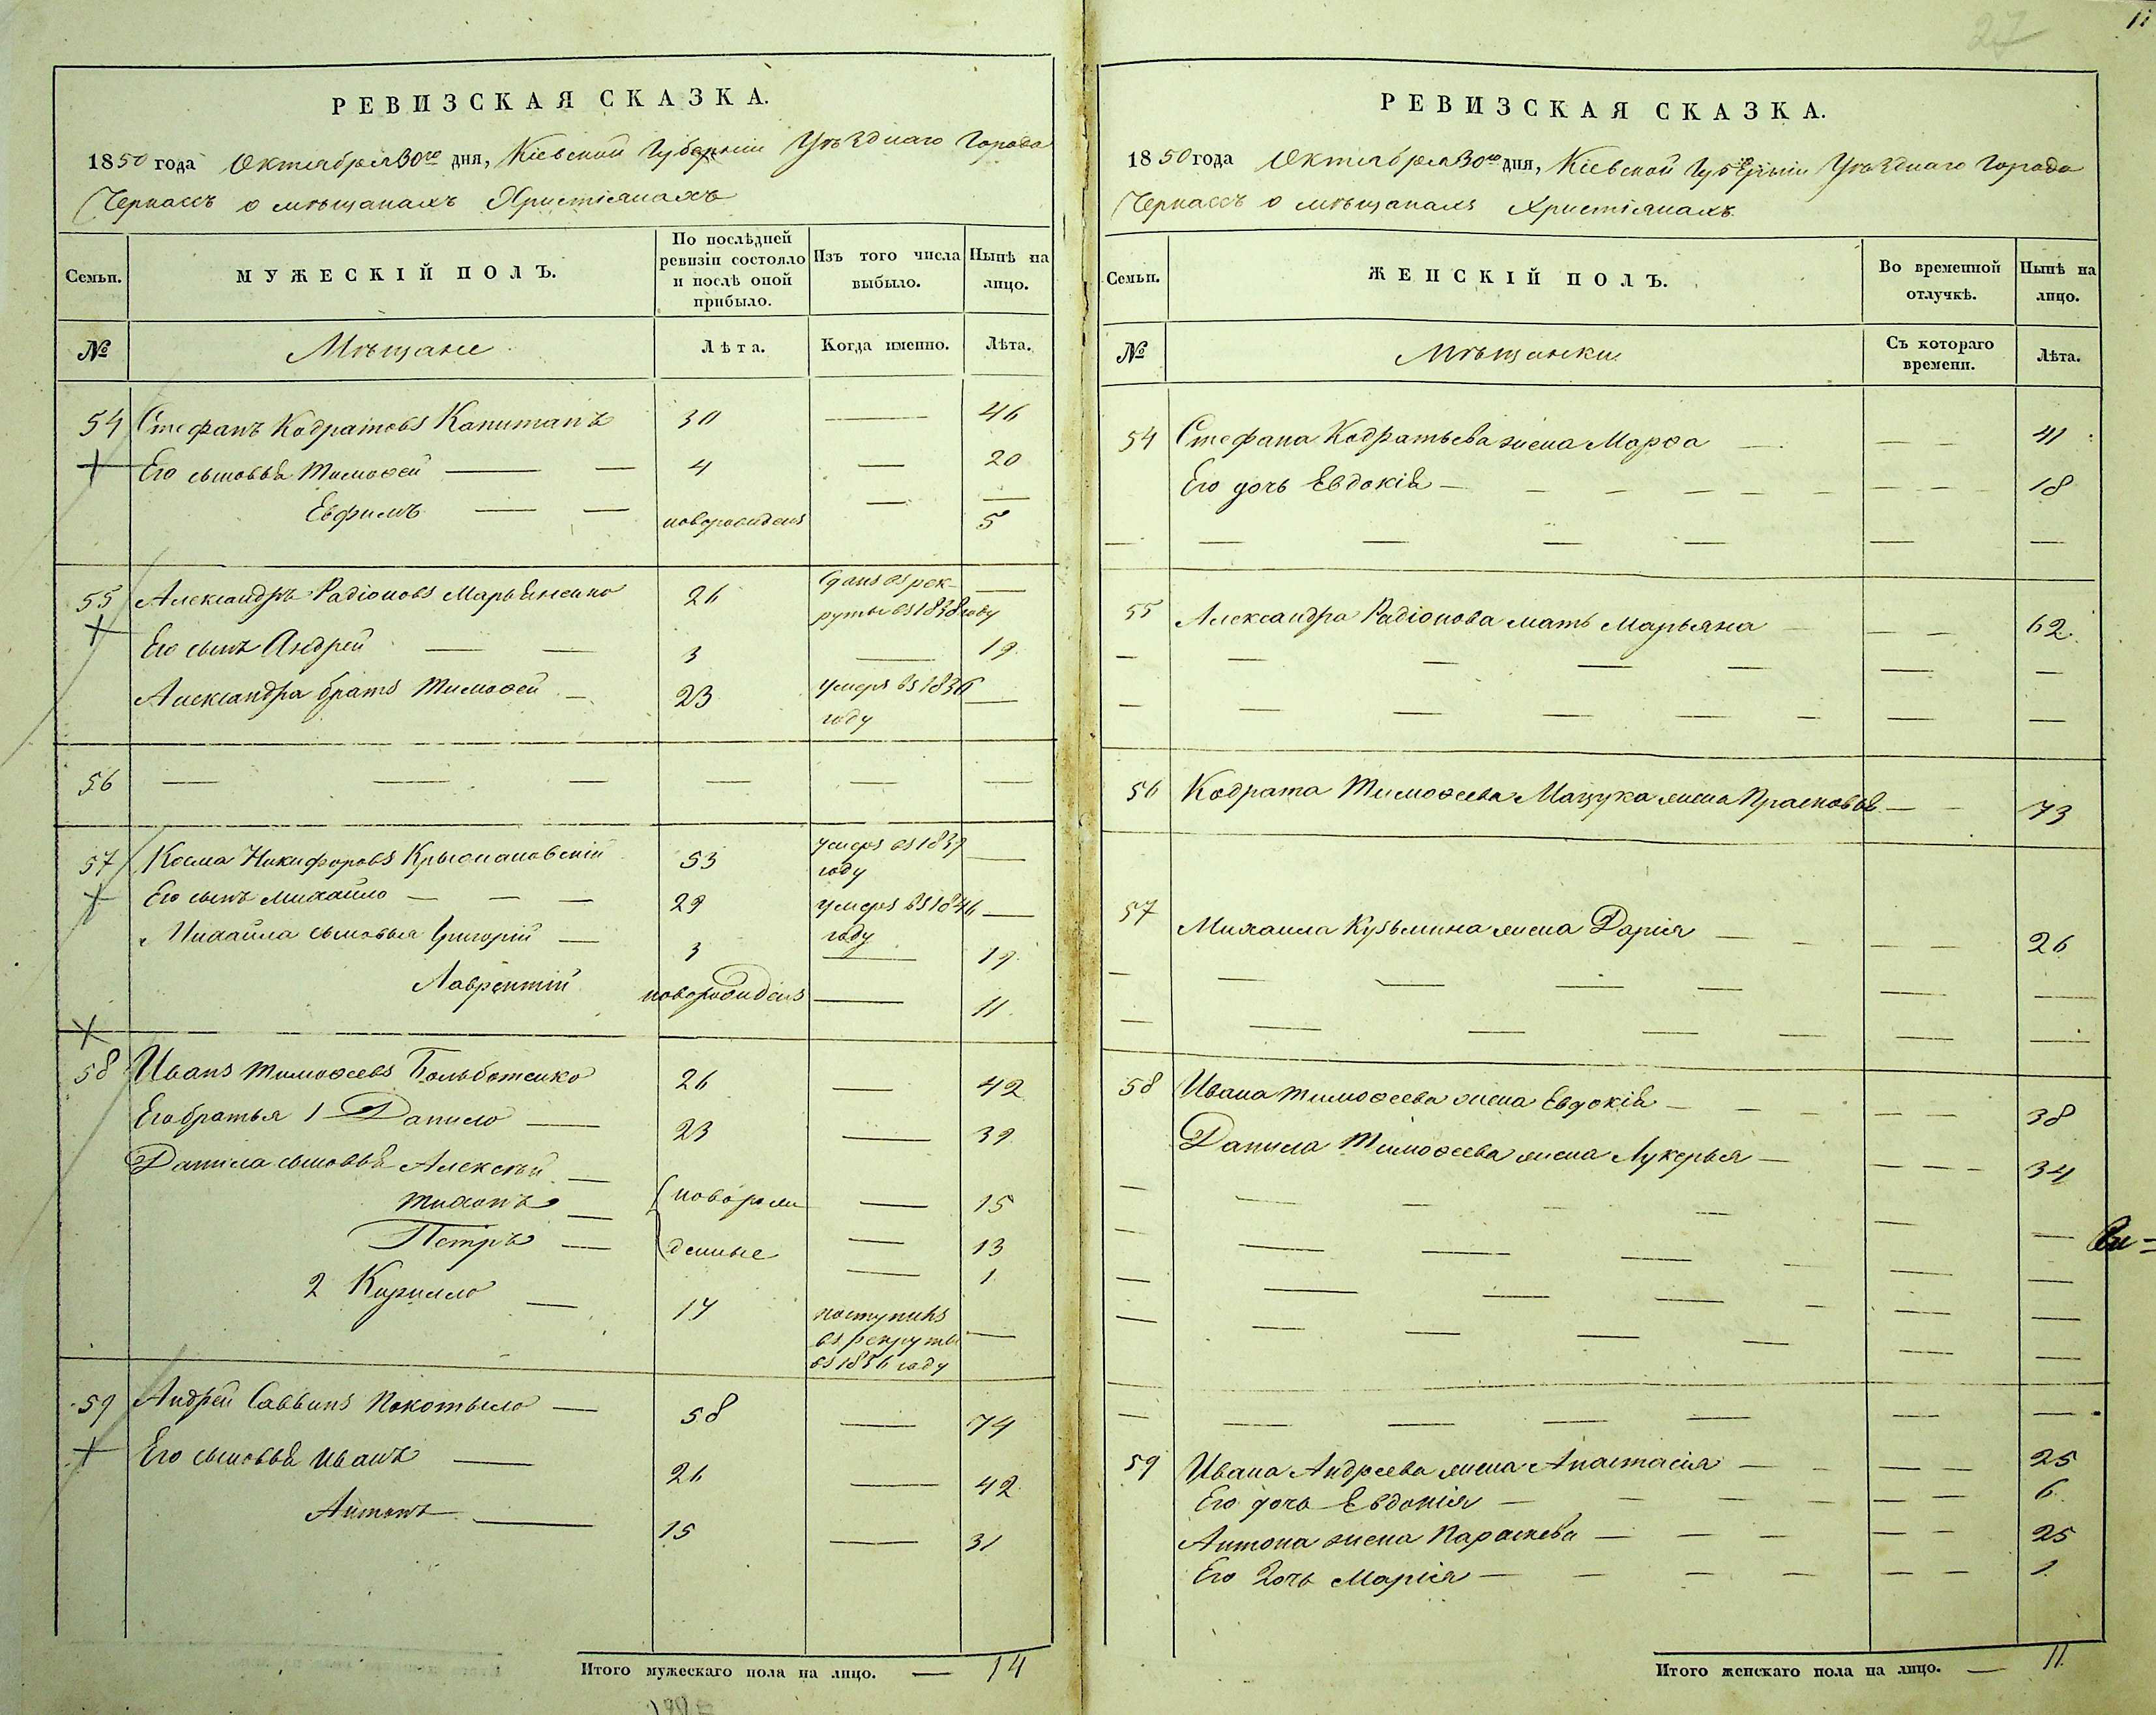 27
11
РЕВИЗСКАЯ СКАЗКА.
1850 года Октября 30го дня, Кіевской Губерніи Уѣзднаго Города
Черкассъ о мѣщанахъ Христіянахъ
Семьи. МУЖЕСКІЙ ПОЛЪ. По послѣдней ревизіи состояло и послѣ оной прибыло. Изъ того числа выбыло. Нынѣ на лицо.
№ Мѣщане Лѣта. Когда именно. Лѣта.
54 Стефанъ Кодратовъ Капитанъ 30 — 46
Его сыновья Тимоѳей — — 4 — 20
Евфимъ — — новорожденъ — — 5
55 Александръ Радіоновъ Марьяненко 26 Сданъ въ рек- —
руты въ 1838 году
Его сынъ Андрей — — 3 — 19
Александра братъ Тимоѳей — 23 умеръ въ 1836 —
году
56 — — — — — —
57 Косма Никифоровъ Крыжановскій 53 умеръ въ 1839 —
году
Его сынъ Михайло — — — 29 умеръ въ 1846 —
году
Михайла сыновья Григорій — 3 — 19
Лаврентій новорожденъ — 11
58 Иванъ Тимоѳеевъ Больботенко 26 — 42
Его братья 1 Данило — 23 — 39
Данила сыновья Алексѣй — новорож — 15
Тихонъ — денные — 13
Петръ — — 1
2 Кирилло — 14 поступилъ
въ рекруты —
въ 1836 году
59 Андрей Саввинъ Покотыло — 58 — 74
Его сыновья Иванъ — 26 — 42
Антонъ — 15 — 31
Итого мужескаго пола на лицо. — 14
РЕВИЗСКАЯ СКАЗКА.
1850 года Октября 30го дня, Кіевской Губерніи Уѣзднаго Города
Черкассъ о мѣщанахъ Христіянахъ.
Семьи. ЖЕНСКІЙ ПОЛЪ. Во временной отлучкѣ. Нынѣ на лицо.
№ Мѣщанки Съ котораго времени. Лѣта.
54 Стефана Кодратьева жена Марѳа — — — 41
Его дочь Евдокія — — — — — — — — — 18
55 Александра Радіонова мать Марьяна — — — 62
56 Кодрата Тимоѳеева Мацука жена Прасковья — — 73
57 Михаила Кузьмина жена Дарія — — — — 26
58 Ивана Тимоѳеева жена Евдокія — — — — — 38
Данила Тимоѳеева жена Лукерья — — — — 34
59 Ивана Андреева жена Анастасія — — — — 25
Его дочь Евдокія — — — — — — 6
Антона жена Параскева — — — — — 25
Его дочь Марія — — — — — — 1
Итого женскаго пола на лицо. — 11